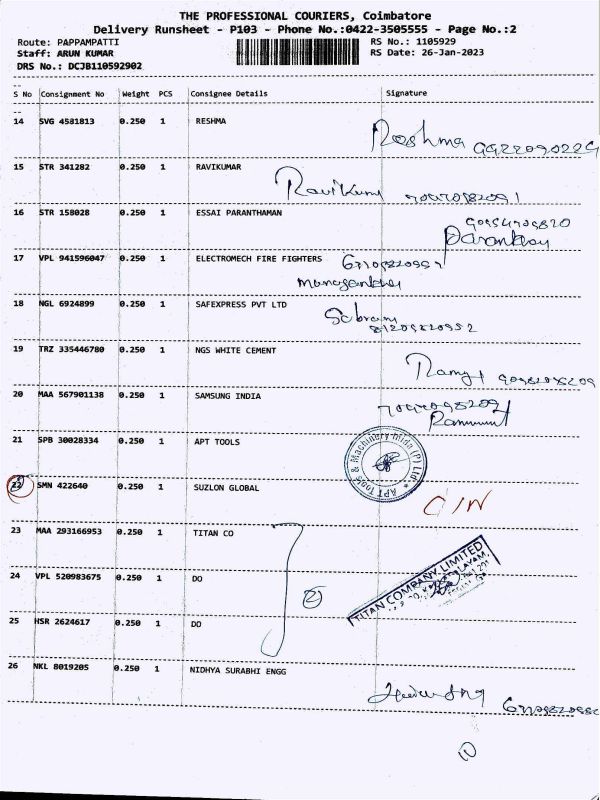 THE PROFESSIONAL COURIERS, Coimbatore
Delivery Runsheet - P103 - Phone No.:0422-3505555 - Page No.:2
Route: PAPPAMPATTI RS No.: 1105929
Staff: ARUN KUMAR RS Date: 26-Jan-2023
DRS No.: DCJB110592902
S No Consignment No Weight PCS Consignee Details Signature
14 SVG 4581813 0.250 1 RESHMA
Reshma
15 STR 341282 0.250 1 RAVIKUMAR
RaviKumar
16 STR 158028 0.250 1 ESSAI PARANTHAMAN
17 VPL 941596047 0.250 1 ELECTROMECH FIRE FIGHTERS
18 NGL 6924899 0.250 1 SAFEXPRESS PVT LTD
19 TRZ 335446780 0.250 1 NGS WHITE CEMENT
20 MAA 567901138 0.250 1 SAMSUNG INDIA
21 SPB 30028334 0.250 1 APT TOOLS
APT Tools & Machinery India (P) Ltd.
22 SMN 422640 0.250 1 SUZLON GLOBAL
23 MAA 293166953 0.250 1 TITAN CO
24 VPL 520983675 0.250 1 DO
TITAN COMPANY LIMITED
25 HSR 2624617 0.250 1 DO
26 NKL 8019205 0.250 1 NIDHYA SURABHI ENGG